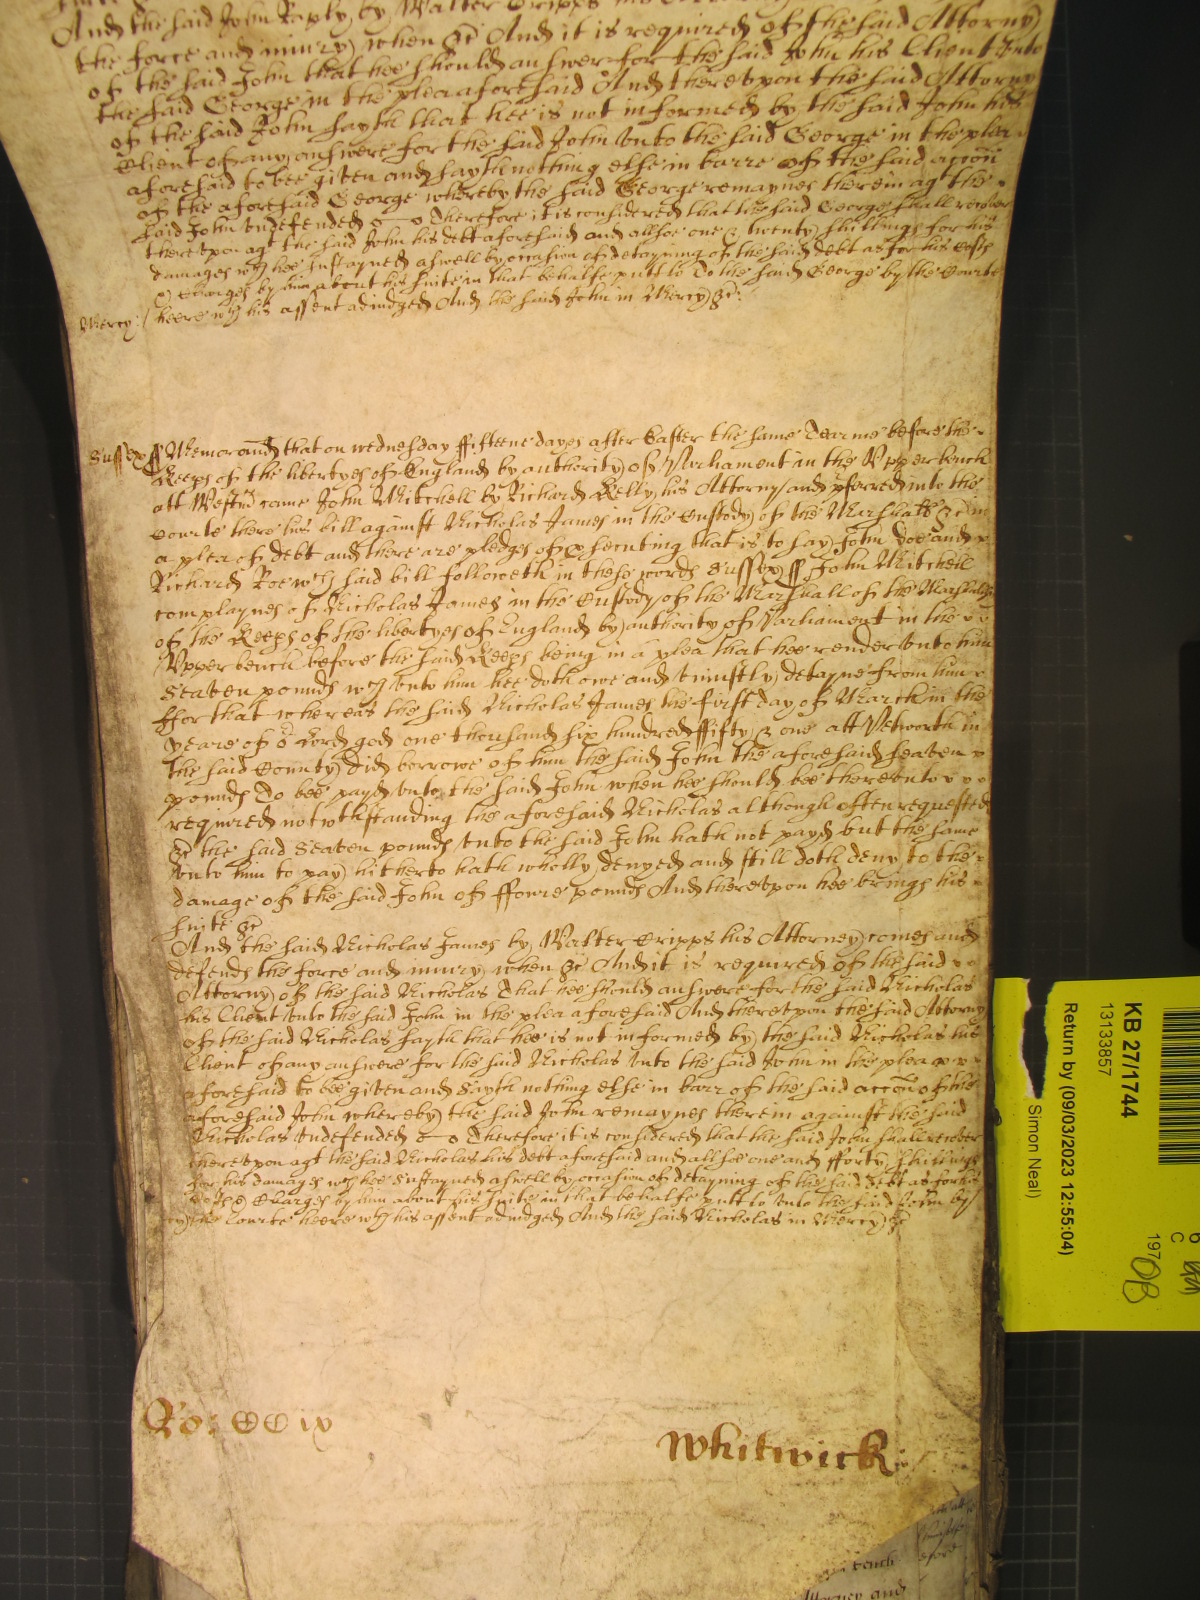 And the said John Raply by Walter Cripps
the force and iniury when &c And it is required of the said Attorny
of the said John that hee should answer for the said John his Client Unto
the said George in the plea aforesaid And thereupon the said Attorny
of the said John sayth that hee is not informed by the said John his
Client of any answere for the said John Unto the said George in the plea
aforesaid to bee given and sayth nothing else in barre of the said accon
of the aforesaid George whereby the said George remaynes therein agt the
said John Undefended Therefore it is considered that the said George shall recover
thereupon agt the said John his debt aforesaid and allsoe one & twenty shillings for his
damages wch hee sustayned aswell by occasion of detayning of the said debt as for his costs
& Charges by him about his suite in that behalfe putt to To the said George by the Courte
Mercy / heere wth his assent adiudged And the said John in Mercy &c
Sussex ss Memorand that on wednesday ffifteene dayes after Easter the same Tearme before the
Keeps of the libertyes of England by authority of Parliament in the Upper bench
att Westm came John Mitchell by Richard Kelly his Attorny and pferred into the
Courte there his bill against Nicholas James in the Custody of the Marshall &c in
a plea of debt and there are pledges of psecuting that is to say John Doe and
Richard Roe wch said bill followeth in these words Sussex ss John Mitchell
complaynes of Nicholas James in the Custody of the Marshall of the Marshalsy
of the Keeps of the libertyes of England by authority of Parliament in the
Upper bench before the said Keeps being in a plea that hee render Unto him
Seaven pounds wch Unto him hee doth owe and Uniustly detayne from him
ffor that whereas the said Nicholas James the first day of March in the
yeare of or Lord god one thousand six hundred ffifty & one att Petworth in
the said County did borrowe of him the said John the aforesaid seaven
pounds To bee payd Unto the said John when hee should bee thereunto
required notwthstanding the aforesaid Nicholas although often requested
&c the said Seaven pounds Unto the said John hath not payd but the same
Unto him to pay hitherto hath wholly denyed and still doth deny to the
damage of the said John of ffowre pounds And thereupon hee brings his
suite &c
And the said Nicholas James by Walter Cripps his Attorney comes and
defends the force and iniury when &c And it is required of the said
Attorny of the said Nicholas That hee should answere for the said Nicholas
his Client Unto the said John in the plea aforesaid And thereupon the said Attorny
of the said Nicholas sayth that hee is not informed by the said Nicholas his
Client of any answere for the said Nicholas Unto the said John in the plea
aforesaid to bee given and Sayth nothing else in barr of the said accon of the
aforesaid John whereby the said John remaynes therein against the said
Nicholas Undefended Therefore it is considered that the said John shall recover
thereupon agt the said Nicholas his debt aforesaid and allsoe one and fforty shillings
for his damages wch hee Sustayned aswell by occasion of detayning of the said debt as for his
Costs & Charges by him about his Suite in that behalfe putt to Unto the said John by
the Courte heere wth his assent adiudged And the said Nicholas in Mercy &c
Ro: CCix
Whitwick
bench
Attorney and
KB 27/1744
13133857
Return by (09/03/2023 12:55:04)
Simon Neal)